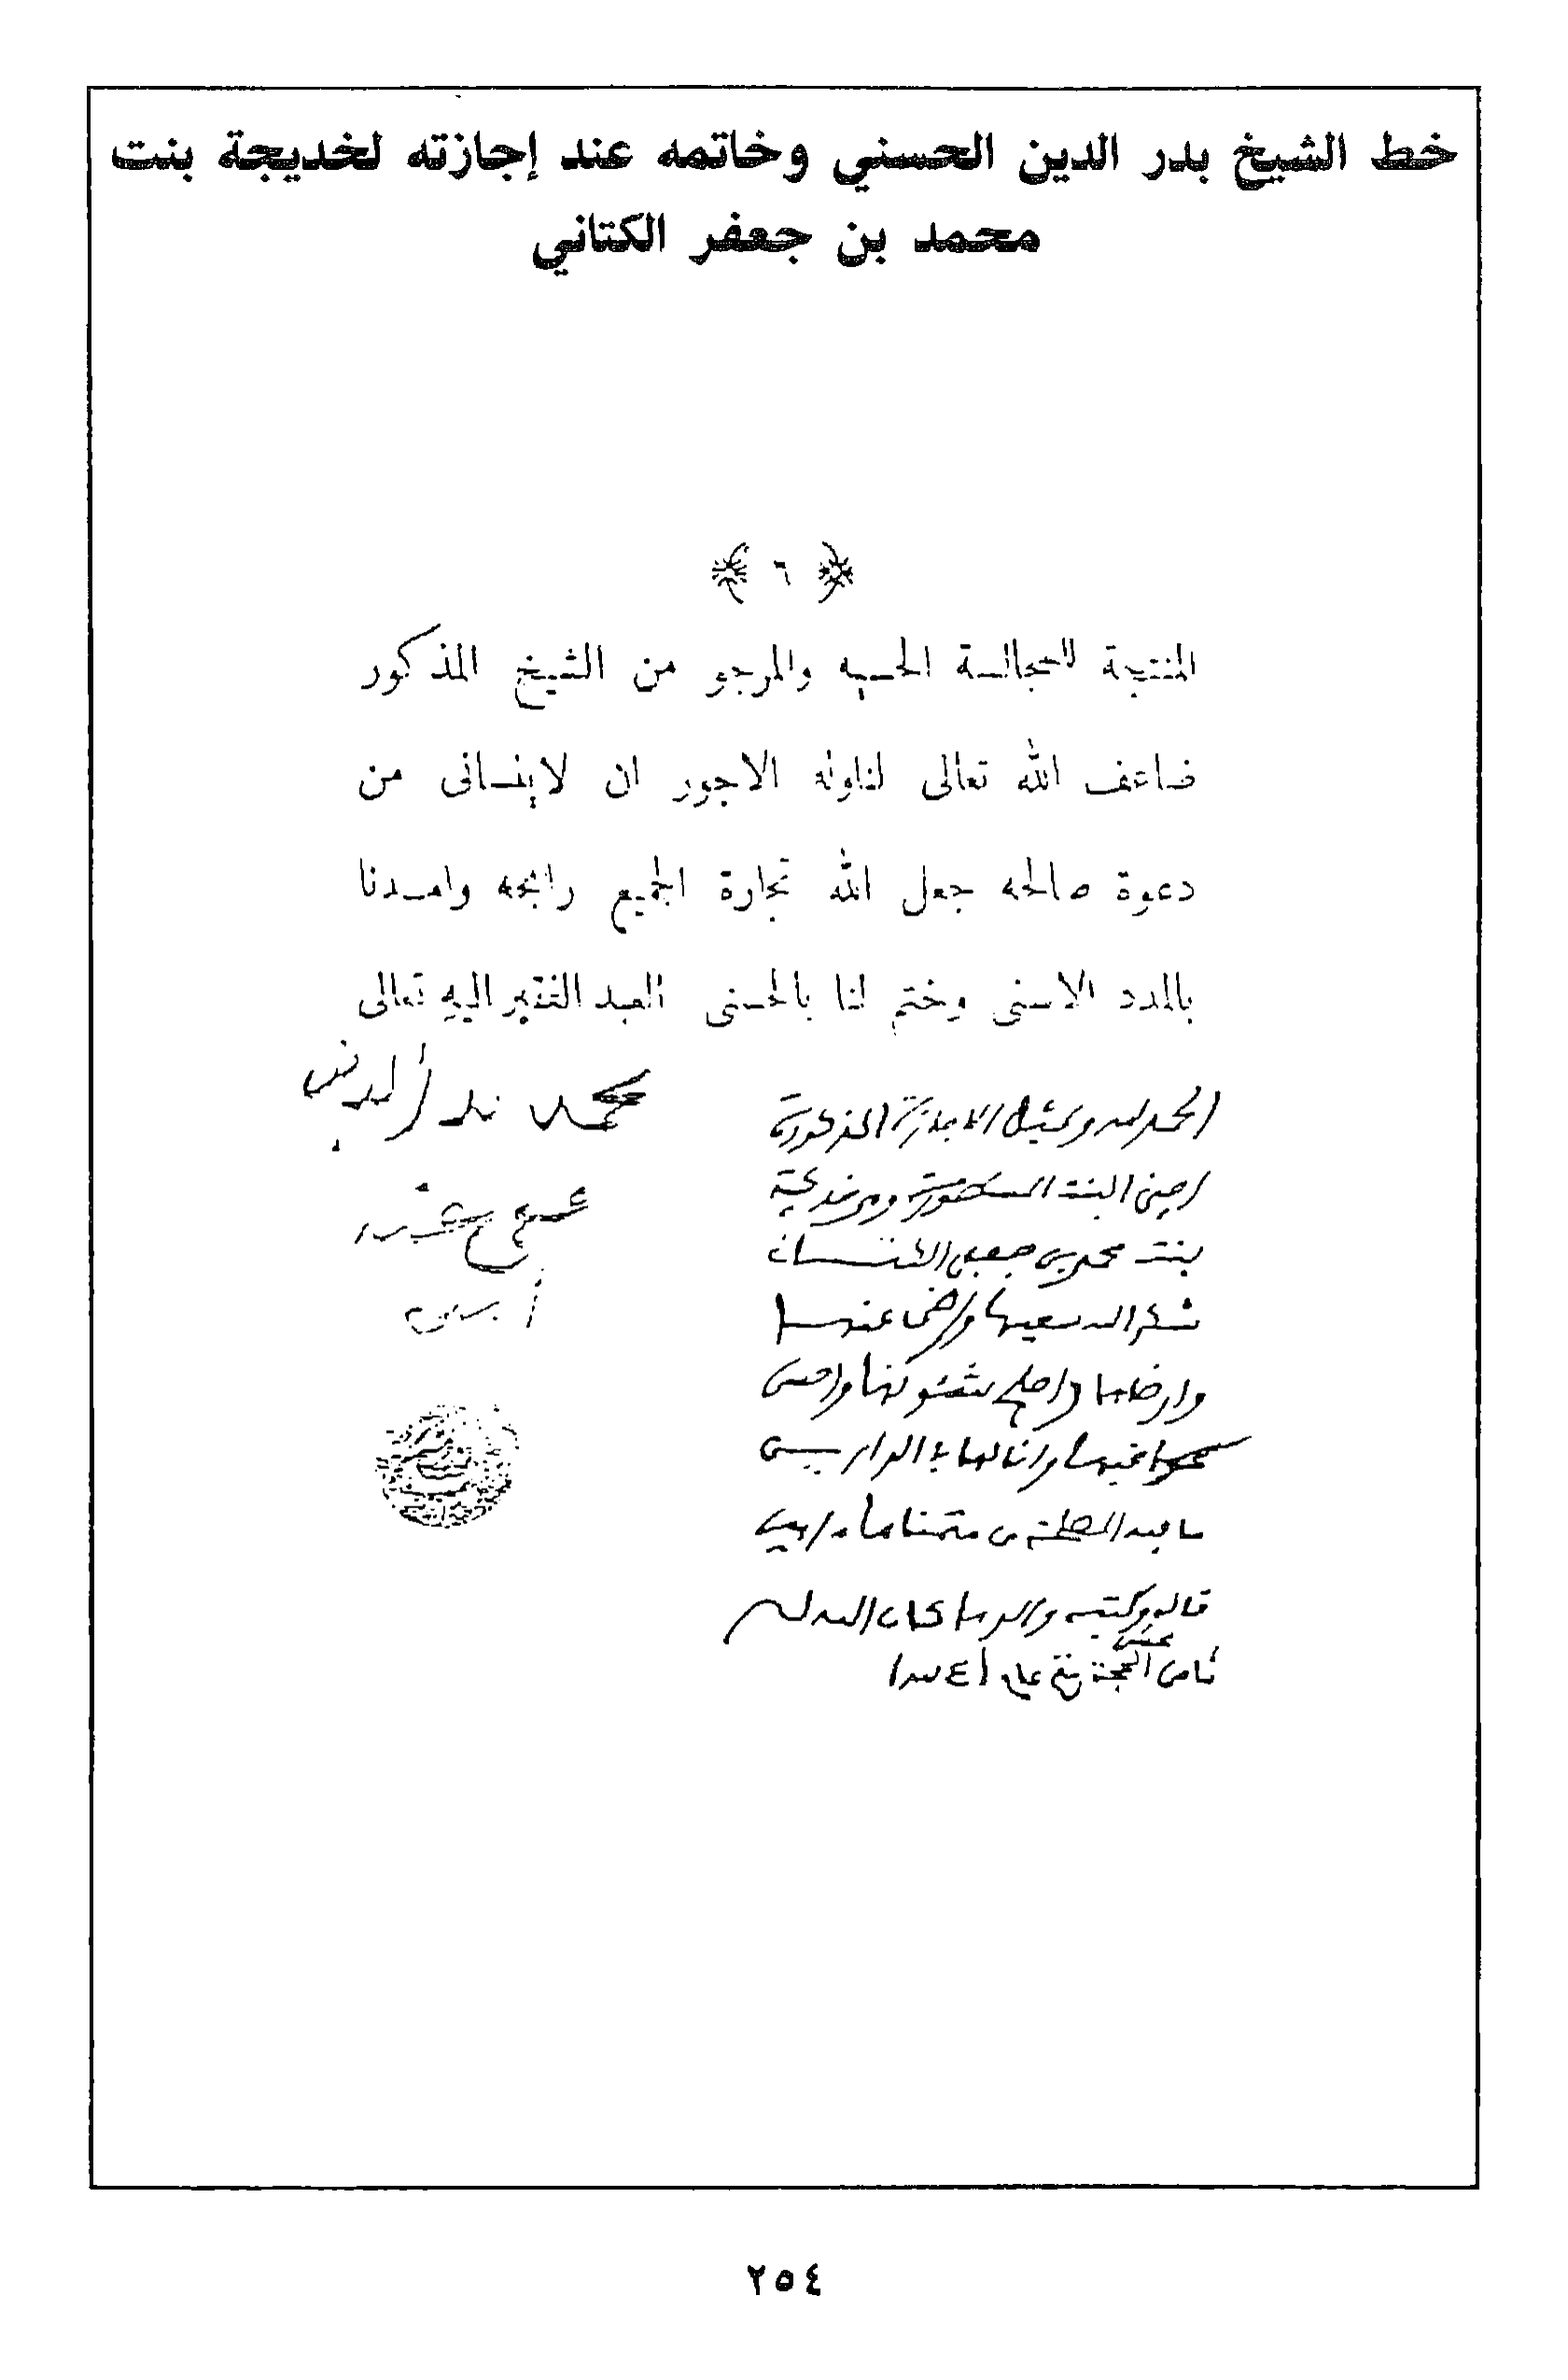 خط الشيخ بدر الدين الحسني وخاتمه عند إجازته لخديجة بنت
محمد بن جعفر الكتاني
﴿ ٦ ﴾
المنتجة للمجالسة الحسيه والمرجو من الشيخ المذكور
ضاعف الله تعالى لنا وله الاجور ان لاينسانى من
دعوة صالحه جعل الله تجارة الجميع رابحه وامدنا
بالمدد الاسنى وختم لنا بالحسنى العبد الفقير اليه تعالى
محمد بدر الدين
عفي عنه
آمين
الحمد لله وبمثل الاجازة المذكورة
اجيز البنت المذكورة وهي خديجة
بنت محمد بن جعفر الكتاني
شكر الله سعيها ورضى عنها
وارضاها واصلح شئونها واحسن
عواقبها وانالها بالدارين
ما فيه المصلحة من متمناها
قاله وكتبه والدها كان الله له
ثامن عشر الحجة عام ١٣٤١
٢٥٤